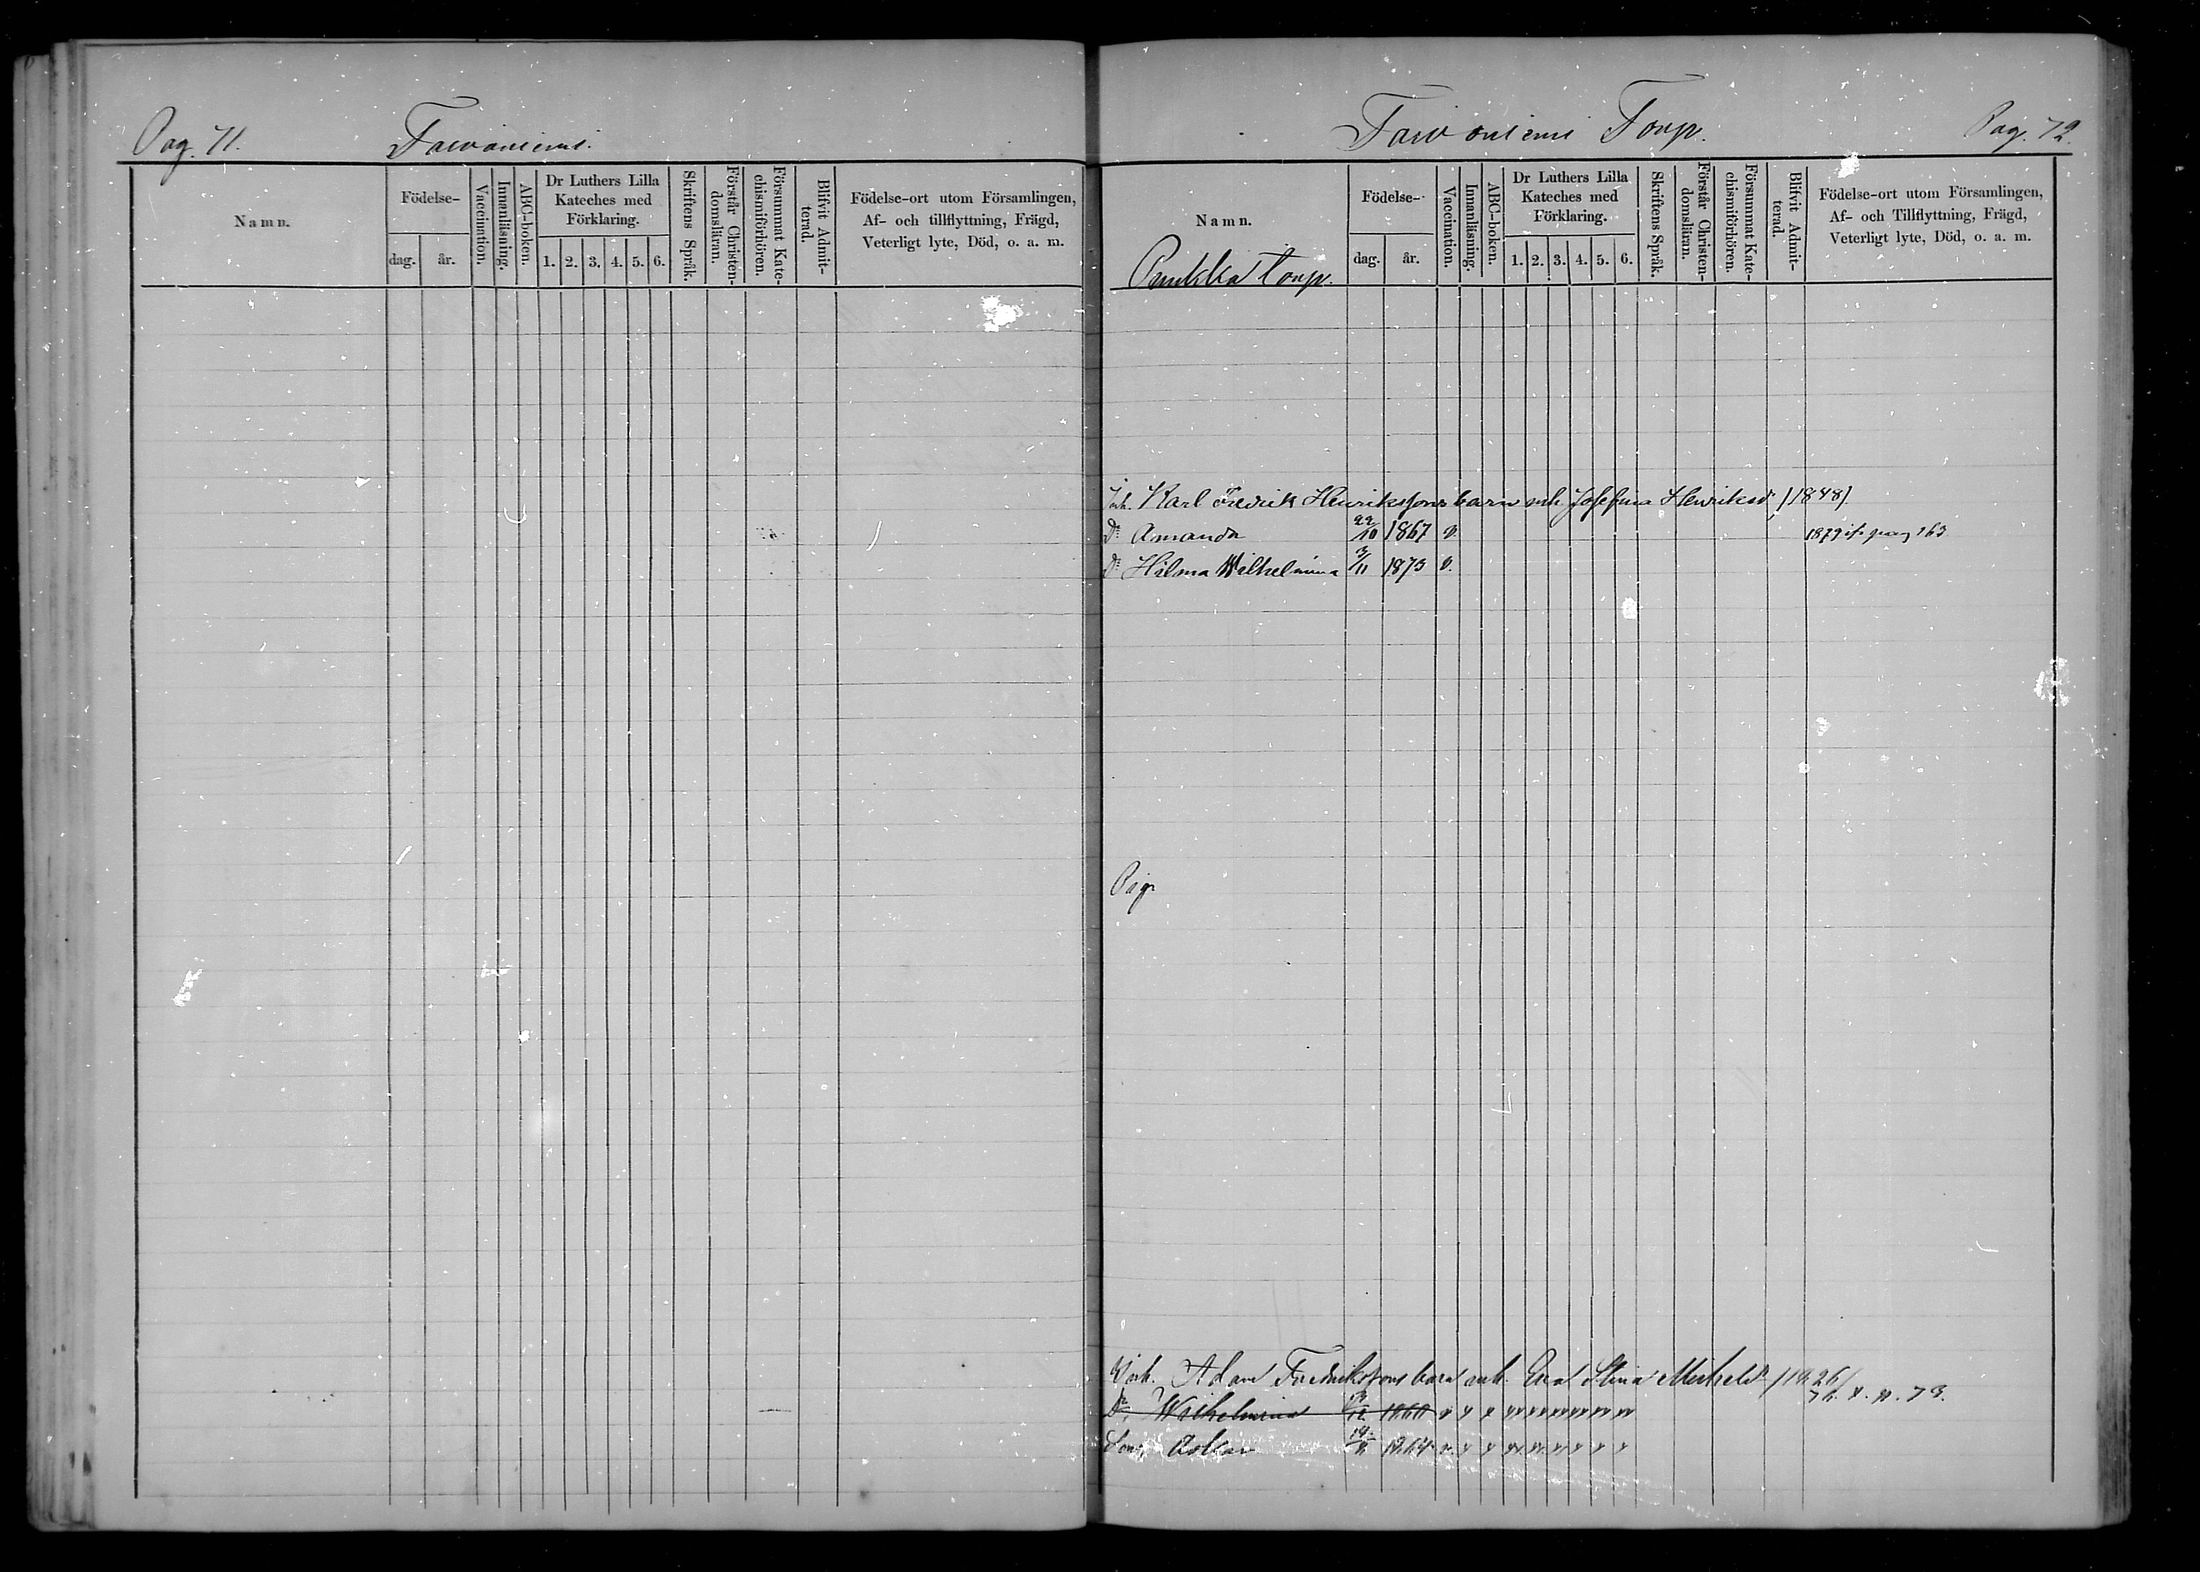 Pag. 71.
Taivaniemi.
Namn.
Födelse-
dag.
år.
Vaccination.
Innanläsning.
ABC-boken.
Dr Luthers Lilla
Kateches med
Förklaring.
1. 2. 3. 4. 5. 6.
Skriftens Språk.
Förstår Christen-
domsläran.
Försummat Kate-
chismiförhören.
Blifvit Admit-
terad.
Födelse-ort utom Församlingen,
Af- och tillflyttning, Frägd,
Veterligt lyte, Död, o. a. m.
Taivaniemi Torp.
Pag. 72.
Namn.
Punkka torp.
Födelse-
dag.
år.
Vaccination.
Innanläsning.
ABC-boken.
Dr Luthers Lilla
Kateches med
Förklaring.
1. 2. 3. 4. 5. 6.
Skriftens Språk.
Förstår Christen-
domsläran.
Försummat Kate-
chismiförhören.
Blifvit Admit-
terad.
Födelse-ort utom Församlingen,
Af- och Tillflyttning, Frägd,
Veterligt lyte, Död, o. a. m.
Karl Fredrik Henrikssons barn m h. Josefina Henriksdr (1848)
Dr Amanda 22/10 1867 v. 1879 pag 163
Dr Hilma Wilhelmina 3/11 1873 v.
Pig.
Adam Fredrikssons barn m h. Eva Stina Michelsdr /1826/
Dr. Wilhelmina 1860 v v v p. 73.
Son, Oskar 1864 v. v v